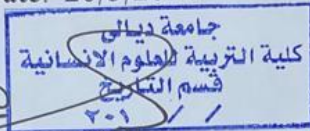 جامعة ديالى
كلية التربية للعلوم الانسانية
قسم التاريخ
٢٠١ / /